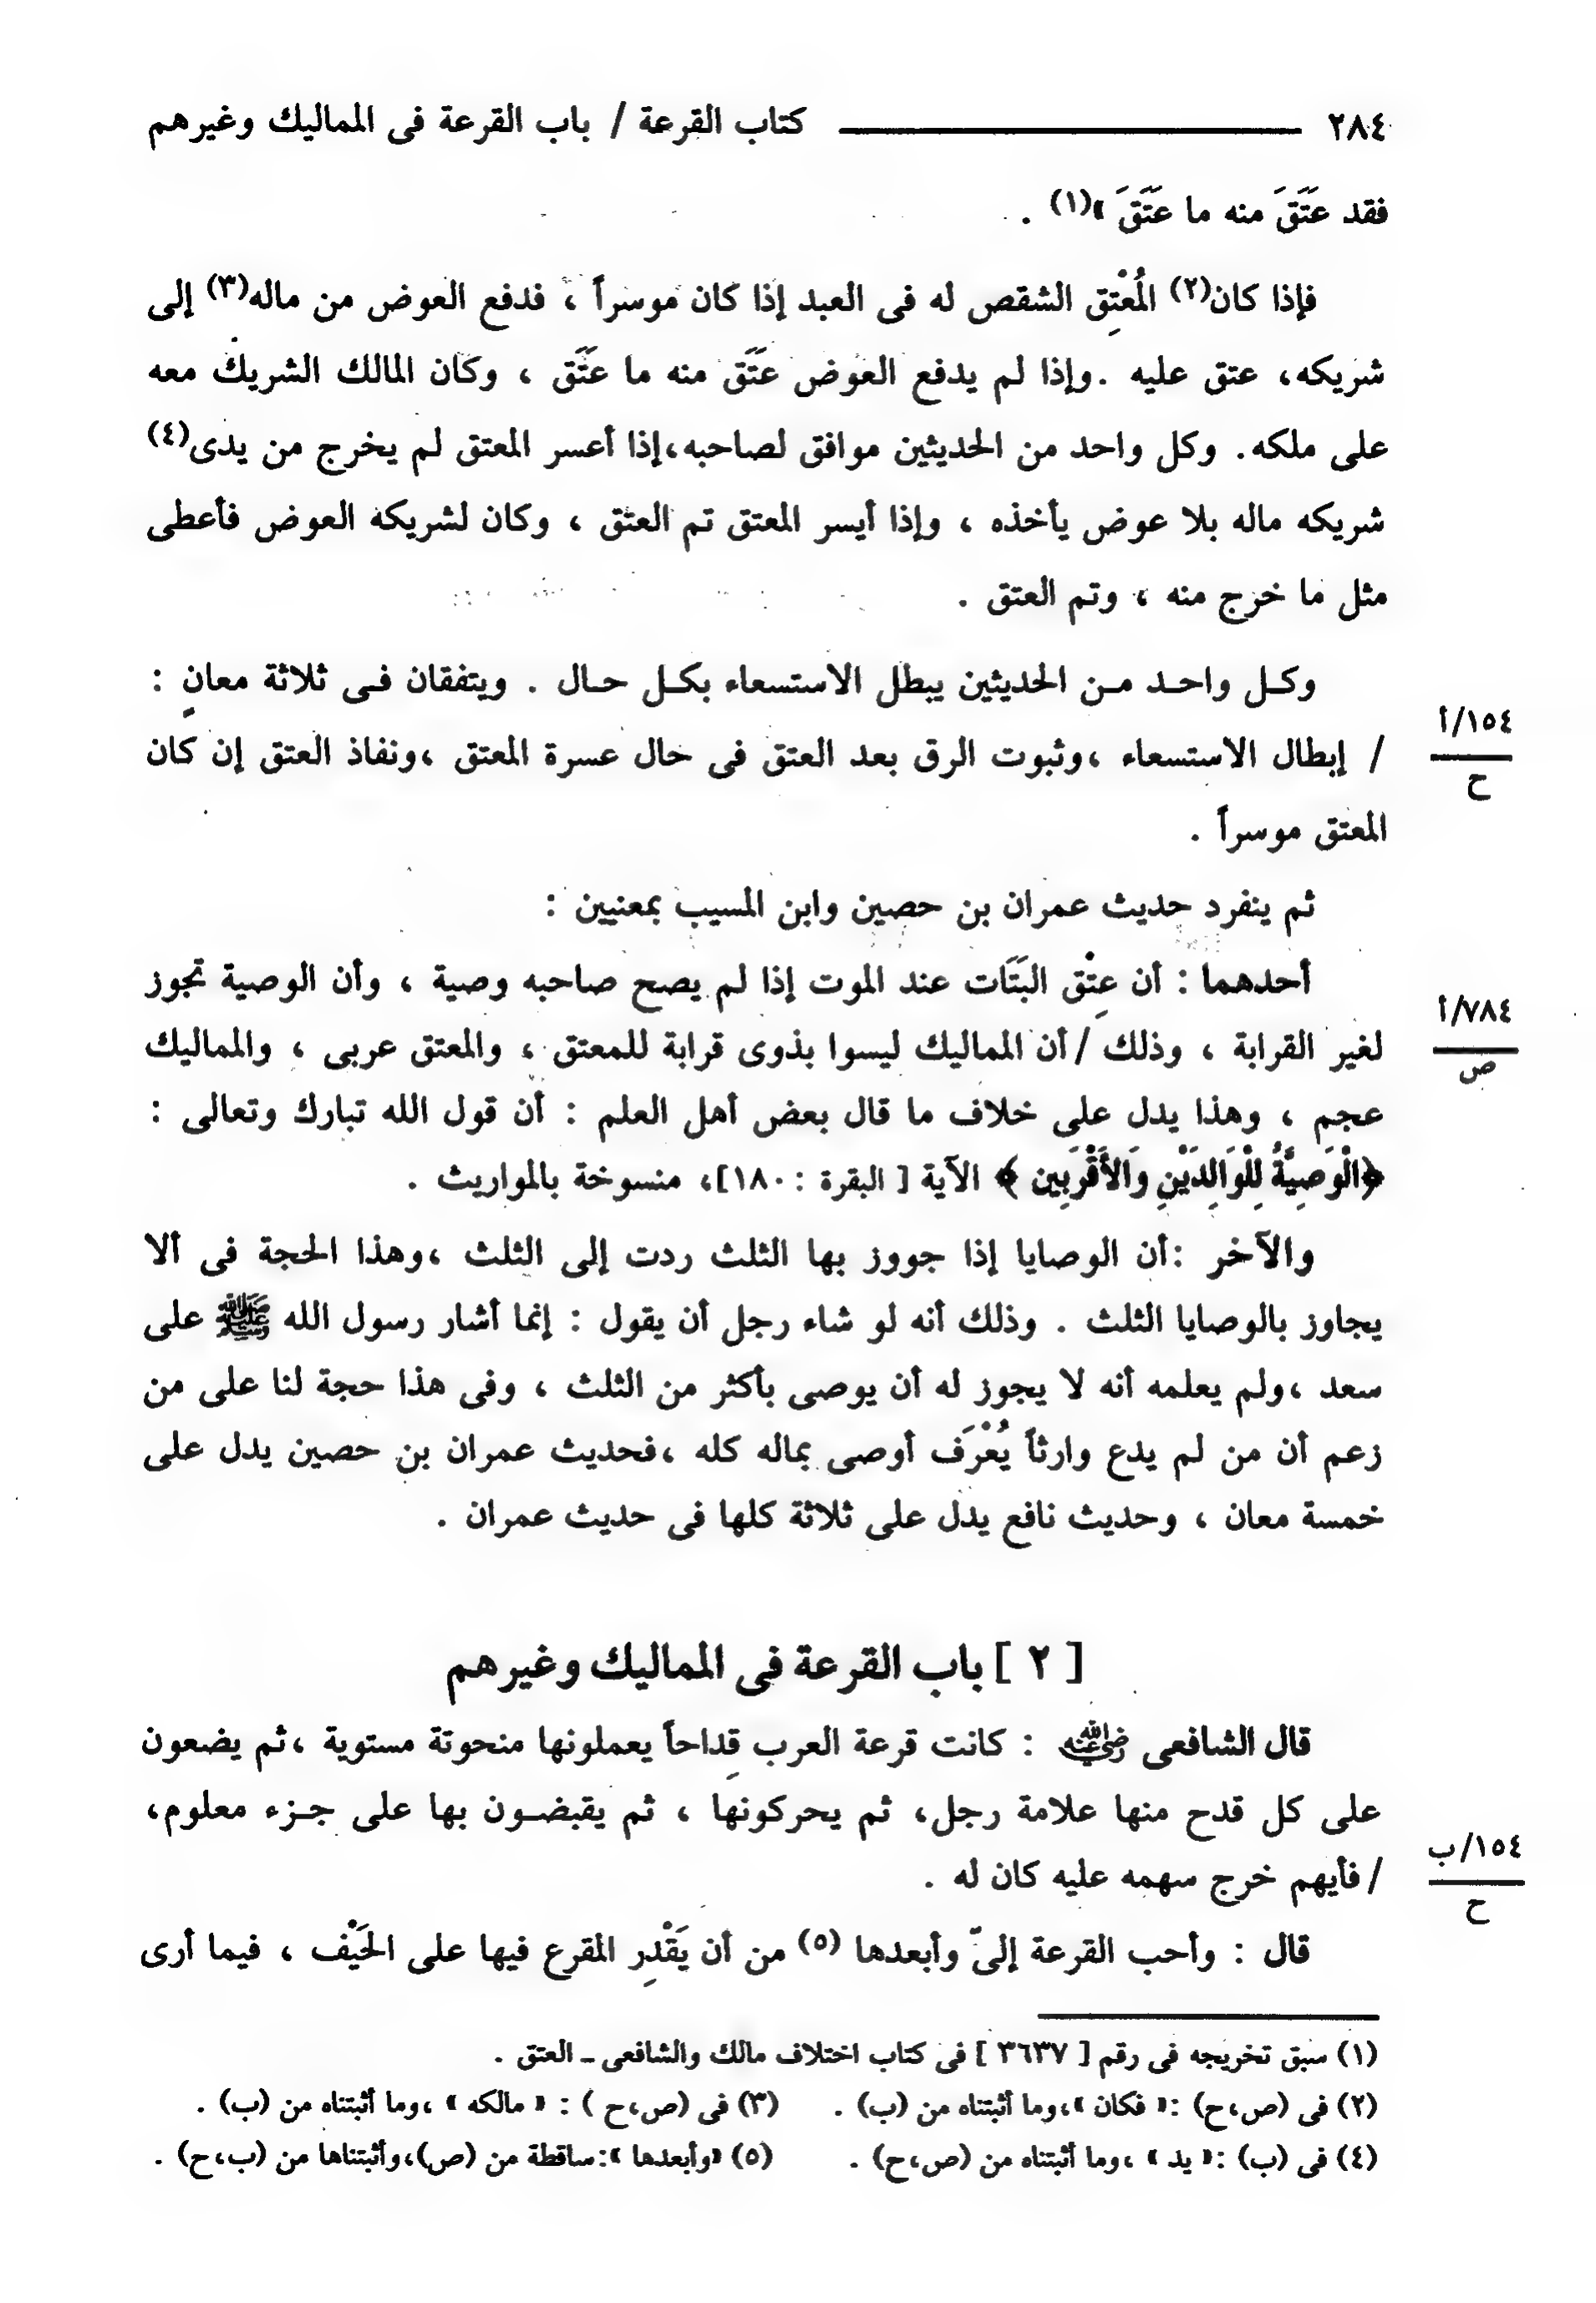 ٢٨٤ كتاب القرعة / باب القرعة فى المماليك وغيرهم
فقد عَتَقَ منه ما عَتَقَ »(١) .
فإذا كان(٢) المُعْتِق الشقص له فى العبد إذا كان موسراً ، فدفع العوض من ماله(٣) إلى
شريكه، عتق عليه . وإذا لم يدفع العوض عَتَق منه ما عَتَق ، وكان المالك الشريك معه
على ملكه. وكل واحد من الحديثين موافق لصاحبه،إذا أعسر المعتق لم يخرج من يدى(٤)
شريكه ماله بلا عوض يأخذه ، وإذا أيسر المعتق تم العتق ، وكان لشريكه العوض فأعطى
مثل ما خرج منه ، وتم العتق .
وكل واحد من الحديثين يبطل الاستسعاء بكل حال . ويتفقان فى ثلاثة معانٍ :
١٥٤/أ
ح
/ إبطال الاستسعاء ،وثبوت الرق بعد العتق فى حال عسرة المعتق ،ونفاذ العتق إن كان
المعتق موسراً .
ثم ينفرد حديث عمران بن حصين وابن المسيب بمعنيين :
أحدهما : أن عِتْق البَتَات عند الموت إذا لم يصح صاحبه وصية ، وأن الوصية تجوز
٧٨٤/أ
ص
لغير القرابة ، وذلك /أن المماليك ليسوا بذوى قرابة للمعتق ، والمعتق عربى ، والمماليك
عجم ، وهذا يدل على خلاف ما قال بعض أهل العلم : أن قول الله تبارك وتعالى :
﴿الْوَصِيَّةُ لِلْوَالِدَيْنِ وَالأَقْرَبِين ﴾ الآية [ البقرة : ١٨٠]، منسوخة بالمواريث .
والآخر :أن الوصايا إذا جووز بها الثلث ردت إلى الثلث ،وهذا الحجة فى ألا
يجاوز بالوصايا الثلث . وذلك أنه لو شاء رجل أن يقول : إنما أشار رسول الله ﷺ على
سعد ،ولم يعلمه أنه لا يجوز له أن يوصى بأكثر من الثلث ، وفى هذا حجة لنا على من
زعم أن من لم يدع وارثاً يُعْرَف أوصى بماله كله ،فحديث عمران بن حصين يدل على
خمسة معان ، وحديث نافع يدل على ثلاثة كلها فى حديث عمران .
[ ٢ ] باب القرعة فى المماليك وغيرهم
قال الشافعى رضي الله عنه : كانت قرعة العرب قِداحاً يعملونها منحوتة مستوية ،ثم يضعون
على كل قدح منها علامة رجل، ثم يحركونها ، ثم يقبضون بها على جزء معلوم،
١٥٤/ب
ح
/ فأيهم خرج سهمه عليه كان له .
قال : وأحب القرعة إلىّ وأبعدها (٥) من أن يَقْدِر المقرع فيها على الحَيْف ، فيما أرى
(١) سبق تخريجه فى رقم [ ٣٦٣٧ ] فى كتاب اختلاف مالك والشافعى ـ العتق .
(٢) فى (ص،ح) :« فكان »،وما أثبتناه من (ب) . (٣) فى (ص،ح ) : « مالكه » ،وما أثبتناه من (ب) .
(٤) فى (ب) :« يد » ،وما أثبتناه من (ص،ح) . (٥) «وأبعدها »:ساقطة من (ص)،وأثبتناها من (ب،ح) .